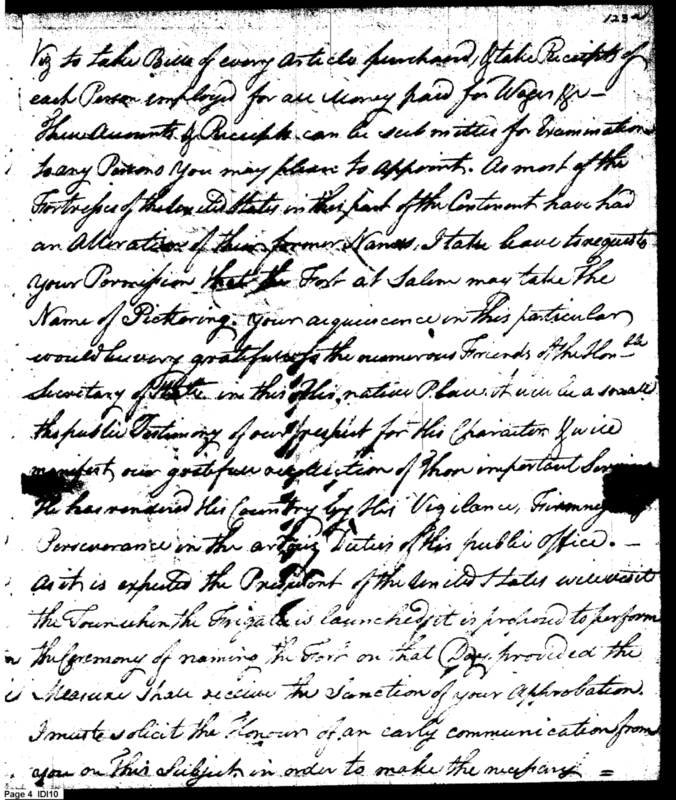 123
Viz to take Bills of every Article purchased, & take Receipts of
each Person employed for all Money paid for Wages &c —
These Accounts & Receipts can be submitted for Examination
to any Persons you may please to appoint. As most of the
Fortresses of the United States in this part of the Continent have had
an Alteration of their former Names, I take leave to request
your Permission that the Fort at Salem may take the
Name of Pickering. Your acquiescence in this particular
would be very grateful to the numerous Friends of the Honble
Secretary of State in this His native Place. it will be a small
tho public Testimony of our respect for His Character & will
manifest our gratefull recollection of those important
He has rendered His Country by His Vigilance, Firmness
Perseverance in the Duties of His public Office. —
As it is expected the President of the United States will visit
the Town when the Frigate is launched, it is proposed to perform
the Ceremony of naming the Fort on that Day, provided the
Measure shall receive the Sanction of your Approbation.
I must solicit the Honour of an early communication from
you on This Subject, in order to make the necessary =
Page 4 IDI10